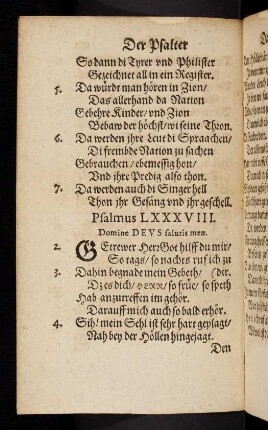 Der Psalter
So dann di Tyrer vnd Philister
Gezeichnet all in ein Register.
5. Da würdt man hören in Zion/
Das allerhand da Nation
Gebehre Kinder/ vnd Zion
Bebaw der höchst/ wi seine Thron.
6. Da werden jhre Leut di Spraachen/
Di frembde Nation zu sachen
Gebrauchen/ ebemessig hon/
Vnd jhre Predig also thon.
7. Da werden auch di Singer hell
Thon jhr Gesäng vnd jhr geschell.
Psalmus LXXXVIII.
Domine DEVS salutis meæ.
2. GEtrewer HerrGot hilff du mir/
So tags/ so nachts ruf ich zu
3. Dahin begnade mein Gebeth/ (dir.
Dz es dich/ HERR/ so früe/ so speth
Hab anzutreffen im gehör.
Darauff mich auch so bald erhör.
4. Sih! mein Sehl ist sehr hart geplagt/
Nah bey der Höllen hingejagt.
Den